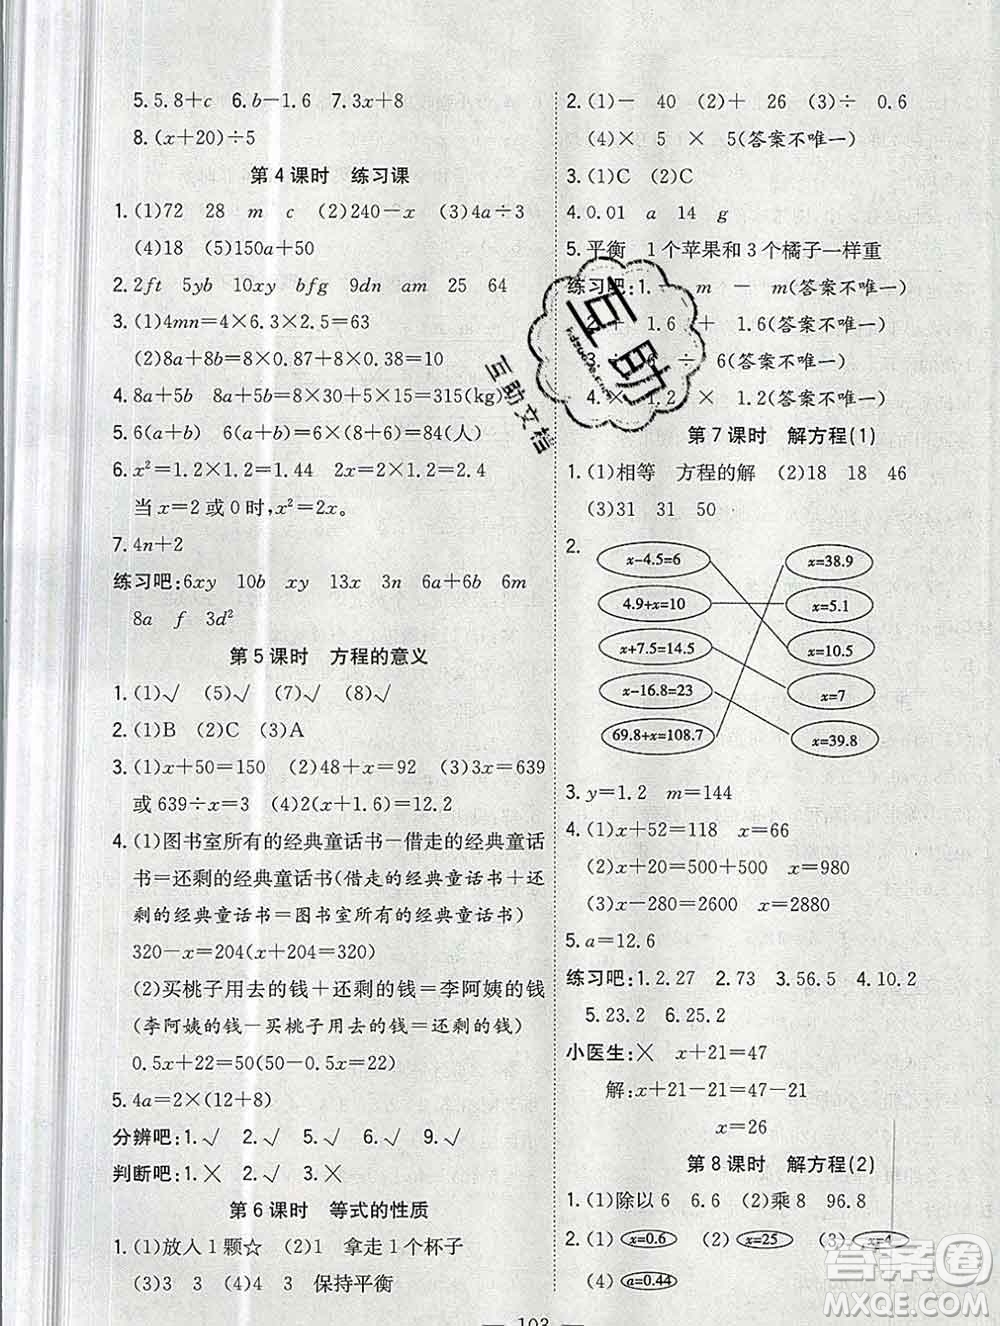 5. 5.8+c 6. b-1.6 7. 3x+8
8. (x+20)÷5
第4课时 练习课
1. (1)72 28 m c (2)240-x (3)4a÷3
(4)18 (5)150a+50
2. 2ft 5yb 10xy bfg 9dn am 25 64
3. (1)4mn=4×6.3×2.5=63
(2)8a+8b=8×0.87+8×0.38=10
4. 8a+5b 8a+5b=8×30+5×15=315(kg)
5. 6(a+b) 6(a+b)=6×(8+6)=84(人)
6. x²=1.2×1.2=1.44 2x=2×1.2=2.4
当x=2或0时,x²=2x。
7. 4n+2
练习吧:6xy 10b xy 13x 3n 6a+6b 6m
8a f 3d²
第5课时 方程的意义
1. (1)√ (5)√ (7)√ (8)√
2. (1)B (2)C (3)A
3. (1)x+50=150 (2)48+x=92 (3)3x=639
或639÷x=3 (4)2(x+1.6)=12.2
4. (1)图书室所有的经典童话书-借走的经典童话
书=还剩的经典童话书(借走的经典童话书+还
剩的经典童话书=图书室所有的经典童话书)
320-x=204(x+204=320)
(2)买桃子用去的钱+还剩的钱=李阿姨的钱
(李阿姨的钱-买桃子用去的钱=还剩的钱)
0.5x+22=50(50-0.5x=22)
5. 4a=2×(12+8)
分辨吧:1.√ 2.√ 5.√ 6.√ 9.√
判断吧:1.× 2.√ 3.×
第6课时 等式的性质
1. (1)放入1颗☆ (2)1 拿走1个杯子
(3)3 3 (4)3 3 保持平衡
2. (1)- 40 (2)+ 26 (3)÷ 0.6
(4)× 5 × 5(答案不唯一)
3. (1)C (2)C
4. 0.01 a 14 g
5. 平衡 1个苹果和3个橘子一样重
练习吧:1. - m - m(答案不唯一)
2. + 1.6 + 1.6(答案不唯一)
3. ÷ 6 ÷ 6(答案不唯一)
4. × 1.2 × 1.2(答案不唯一)
互助
互助文档
第7课时 解方程(1)
1. (1)相等 方程的解 (2)18 18 46
(3)31 31 50
2.
x-4.5=6 x=38.9
4.9+x=10 x=5.1
x+7.5=14.5 x=10.5
x-16.8=23 x=7
69.8+x=108.7 x=39.8
3. y=1.2 m=144
4. (1)x+52=118 x=66
(2)x+20=500+500 x=980
(3)x-280=2600 x=2880
5. a=12.6
练习吧:1. 2.27 2. 73 3. 56.5 4. 10.2
5. 23.2 6. 25.2
小医生:× x+21=47
解:x+21-21=47-21
x=26
第8课时 解方程(2)
1. (1)除以6 6.6 (2)乘8 96.8
2. (1) x=0.6 (2) x=25 (3) x=4
(4) a=0.44
答案圈
MXQE.COM
103